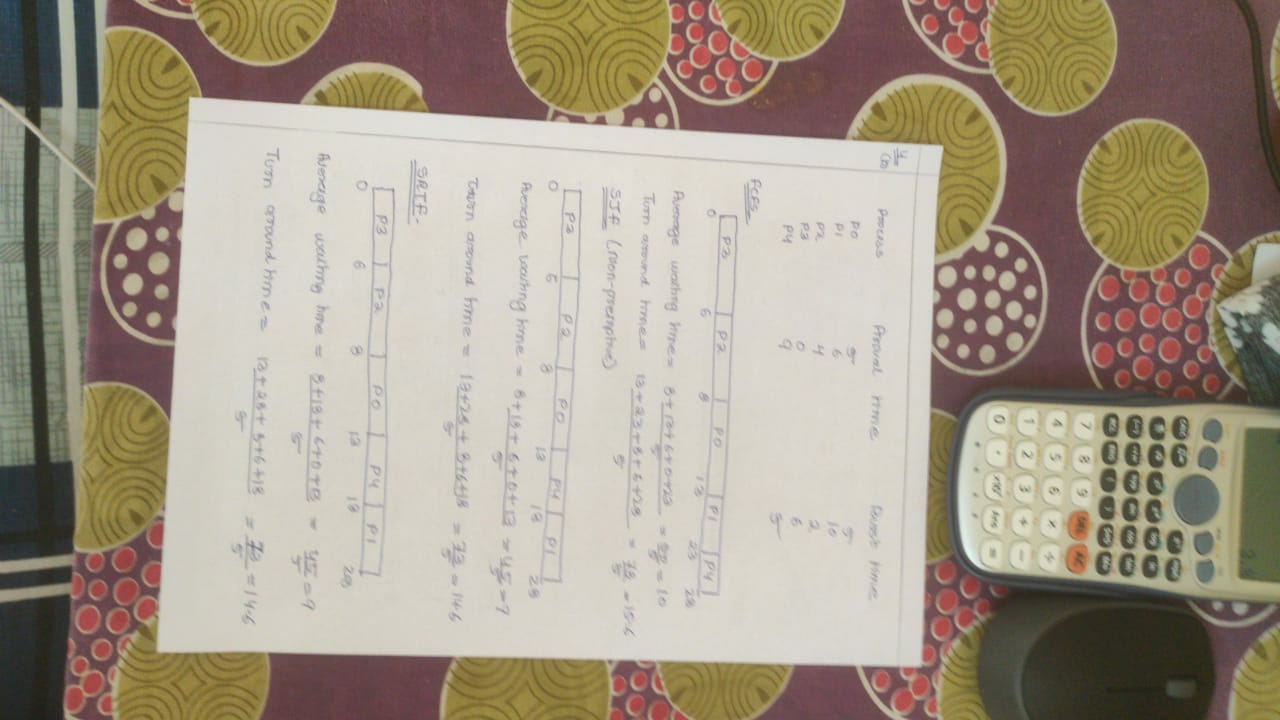 4
(b)
Process Arrival time Burst time
P0 5 5
P1 6 10
P2 4 2
P3 0 6
P4 9 5
FCFS
P3 P2 P0 P1 P4
0 6 8 13 23 28
Average waiting time = 8+13+6+0+23 / 5 = 50/5 = 10
Turn around time = 13+23+8+6+28 / 5 = 78/5 = 15.6
SJF (Non-premptive)
P3 P2 P0 P4 P1
0 6 8 13 18 28
Average waiting time = 8+18+6+0+13 / 5 = 45/5 = 9
Turn around time = 13+28+8+6+18 / 5 = 73/5 = 14.6
SRTF.
P3 P2 P0 P4 P1
0 6 8 13 18 28
Average waiting time = 8+18+6+0+13 / 5 = 45/5 = 9
Turn around time = 13+28+8+6+18 / 5 = 73/5 = 14.6
7 8 9 DEL AC
4 5 6 × ÷
1 2 3 + −
0 . Ans =